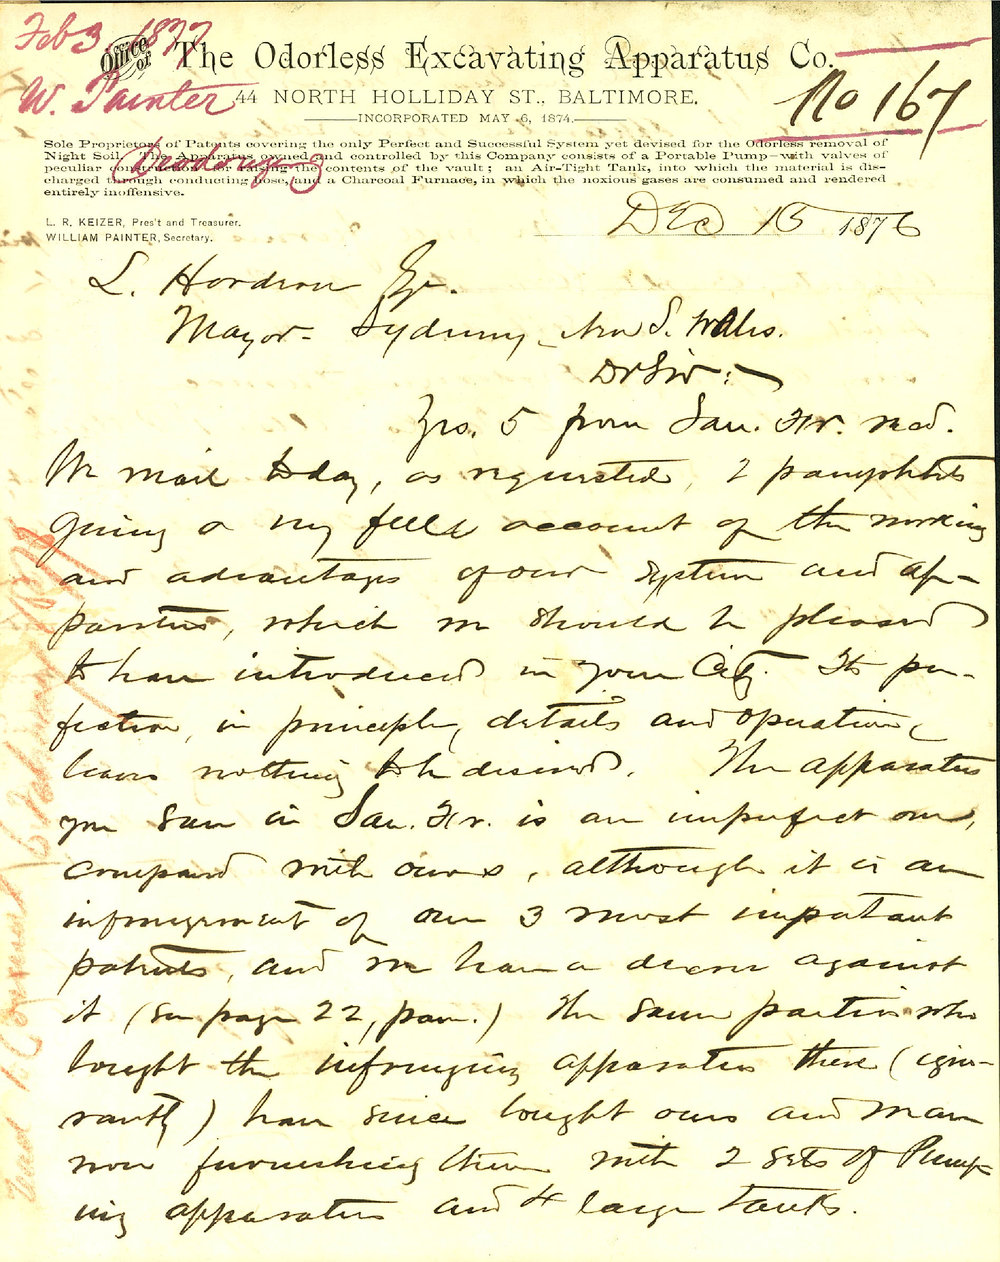 Feb 3. 1877
W. Painter
Office of The Odorless Excavating Apparatus Co.
No 167
44 NORTH HOLLIDAY ST., BALTIMORE.
INCORPORATED MAY 6, 1874.
Sole Proprietors of Patents covering the only Perfect and Successful System yet devised for the Odorless removal of
Night Soil. The Apparatus owned and controlled by this Company consists of a Portable Pump—with valves of
peculiar construction for raising the contents of the vault; an Air-Tight Tank, into which the material is dis-
charged through conducting hose, and a Charcoal Furnace, in which the noxious gases are consumed and rendered
entirely inoffensive.
L. R. KEIZER, Pres't and Treasurer.
WILLIAM PAINTER, Secretary.
Dec 15 1876
Esqr.
Mayor - Sydney, New S. Wales.
Dr Sir:
Yrs. 5 from San. Fr. recd.
We mail today, as requested, 2 pamphlets
giving a very full account of the working
and advantages of our system and ap-
paratus, which we should be pleased
to have introduced in your City. Its per-
fection, in principle, details and operation,
leaves nothing to be desired. The apparatus
you saw in San. Fr. is an imperfect one,
compared with ours, although it is an
infringement of our 3 most important
patents, and we have a decree against
it (see page 22, pam.) The same parties who
bought the infringing apparatus there (igno-
rantly) have since bought ours and we are
now furnishing them with 2 sets of Pump-
ing apparatus and 4 large Tanks.